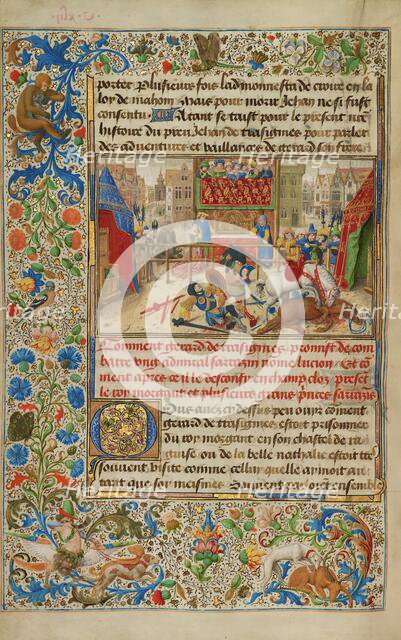 porter plusieurs fois ladmonnesta de croire en la
loy de mahom Mais pour morir Jehan ne si fust
consentu Atant se taist pour le present nre
histoire du preu Jehan de trasignies pour parler
des adventures et vaillances de gerard son frere
Comment gerard de trasignies promist de com
batre ung admiral sarrazin nome lucion Et co
ment apres ce il le desconfi en champ clos prese
le roy morgant et plusieurs grans princes sarrazins
Que avez en dessus peu ouyr coment
gerard de trasignies estoit prisonnier
du roy morgant en son chastel de ra
guise ou de la belle nathalie estoit tres
souvent visite comme cellui quelle aimoit au
tant que soy meismes Souvent devisoient ensemble
heritage-images.com